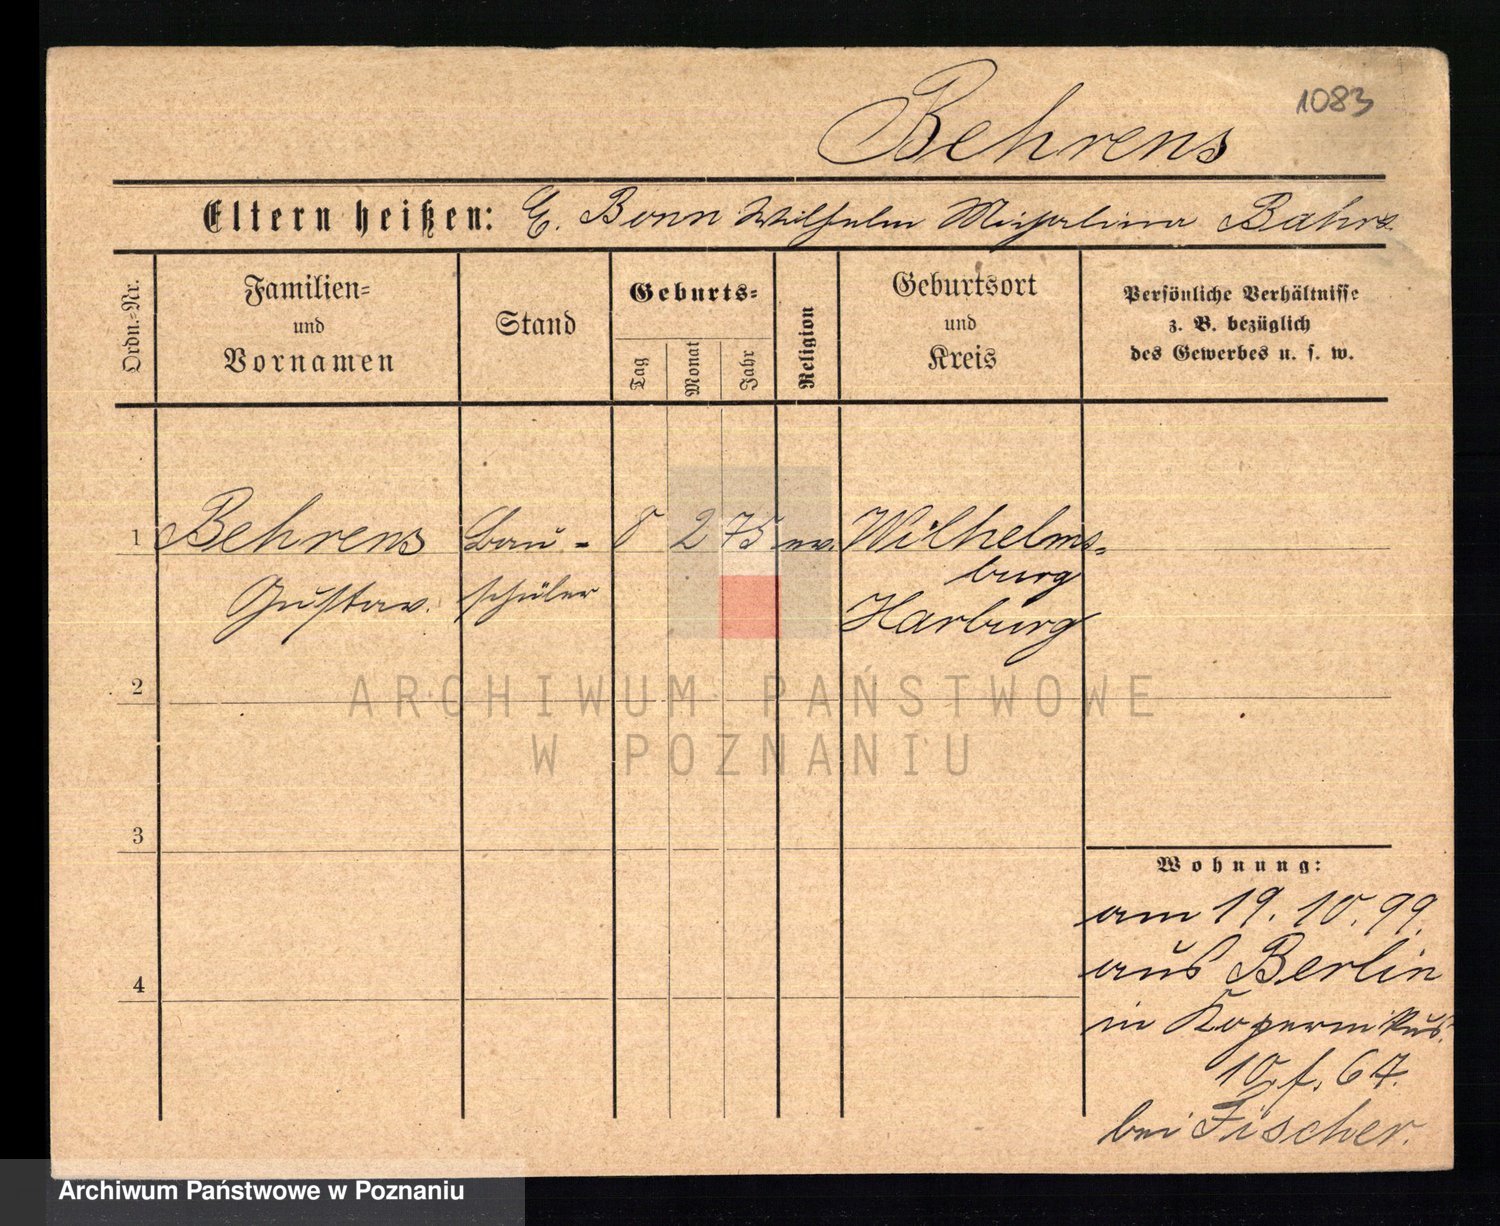 1083
Behrens
Eltern heißen: E. Bonn Wilhelm Bahrs
Ordn.=Nr.
Familien=
und
Vornamen
Stand
Geburts=
Tag
Monat
Jahr
Religion
Geburtsort
und
Kreis
Persönliche Verhältnisse
z. B. bezüglich
des Gewerbes u. s. w.
1 Behrens Bau= 8 2 75 ev. Wilhelms=
burg
Gustav. schüler Harburg
2
ARCHIWUM PAŃSTWOWE
W POZNANIU
3
Wohnung:
am 19. 10. 99.
aus Berlin
4
in Kopernikus.
10, f. 67.
bei Fischer.
Archiwum Państwowe w Poznaniu